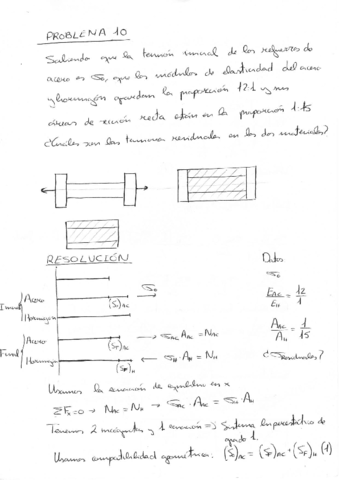 PROBLEMA 10
Sabiendo que la tensión inicial de los refuerzos de
acero es σ₀, que los módulos de elasticidad del acero
y hormigón guardan la proporción 12:1 y sus
áreas de sección recta están en la proporción 1:15
¿Cuáles son las tensiones residuales en los dos materiales?
RESOLUCIÓN
Datos
σ₀
Inicial
Acero
(δ₀)AC
σ₀
Hormigón
E_AC / E_H = 12 / 1
Final
Acero
(δF)AC
→ σAC AAC = NAC
Hormigón
(δF)H
→ σH · AH = NH
A_AC / A_H = 1 / 15
¿σresiduales?
Usamos la ecuación de equilibrio en x
ΣFx=0 → NAC = NH → σAC · AAC = σH · AH
Tenemos 2 incógnitas y 1 ecuación => Sistema hiperestático de
grado 1.
Usamos compatibilidad geométrica: (δ₀)AC = (δF)AC + (δF)H (1)